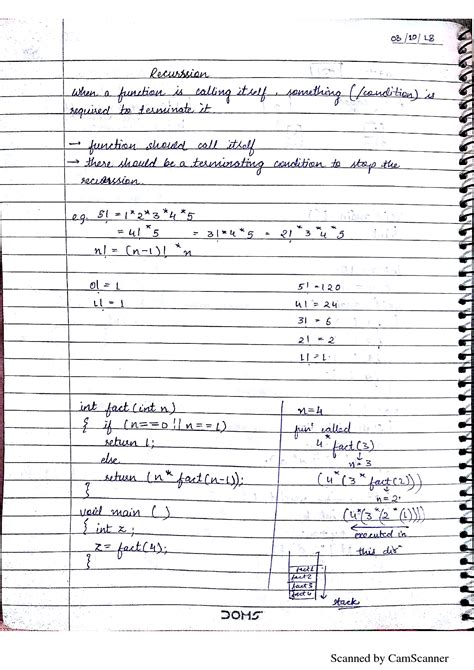 03/10/18
Recurssion
when a function is calling itself, something (/condition) is
required to terminate it.
→ function should call itself
→ there should be a terminating condition to stop the
recurssion.
e.g. 5! = 1*2*3*4*5
= 4!*5 = 3!*4*5 = 2!*3*4*5
n! = (n-1)! *n
0! = 1
1! = 1
5! = 120
4! = 24
3! = 6
2! = 2
1! = 1
int fact (int n)
{ if (n==0 || n==1)
return 1;
else
return (n* fact(n-1));
}
void main ( )
{ int z;
z= fact(4);
}
n=4
fun' called
4* fact(3)
n=3
(4*(3* fact(2)))
n=2
(4*(3*(2*(1))))
executed in
this dir
fact 1
fact 2
fact 3
fact 4
stack
DOMS
Scanned by CamScanner